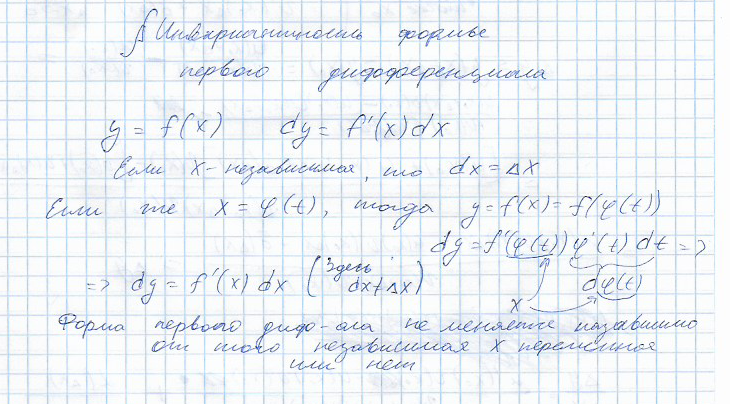 § Инвариантность формы
первого дифференциала
y = f(x) dy = f'(x)dx
Если x - независимая, то dx = Δx
Если же x = φ(t), тогда y = f'(x) = f(φ(t))
dy = f'(φ(t)) φ'(t) dt =>
=> dy = f'(x) dx (здесь dx ≠ Δx)
x dφ(t)
Форма первого дифф-ала не меняется независимо
от того независимая x переменная
или нет